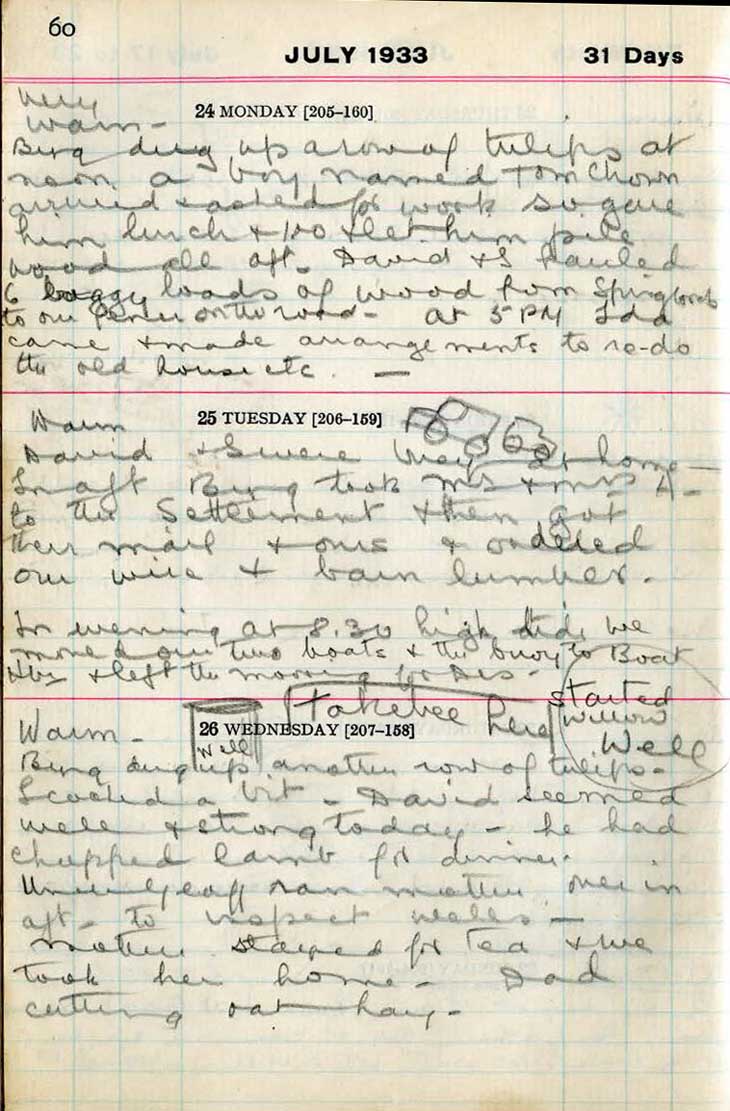 60
JULY 1933 31 Days
Very
Warm -
24 MONDAY [205-160]
Bing dug up a row of tulips at
noon. a boy named Tom Chown
arrived & asked for work so gave
him lunch & 1.00 & let him pile
wood all aft. David & I hauled
6 buggy loads of wood from
to our on the road - at 5 PM
came & made arrangements to re-do
the old house etc. -
Warm
25 TUESDAY [206-159]
David & I were busy at home -
In aft Bing took Mrs & Mrs A-
to the Settlement & then got
their mail & ours & ordered
our wire & barn lumber.
In evening at 8.30 high tide we
moved our two boats & the buoy to Boat
& left the mooring for
Takebee here
started
Willow
Well
Warm -
26 WEDNESDAY [207-158]
Well
Bing dug up another row of tulips -
I a bit - David seemed
well & strong today - he had
chopped lamb for dinner.
ran mother over in
aft - to inspect wells -
Mother stayed for Tea & we
took her home - Dad
cutting oat hay -